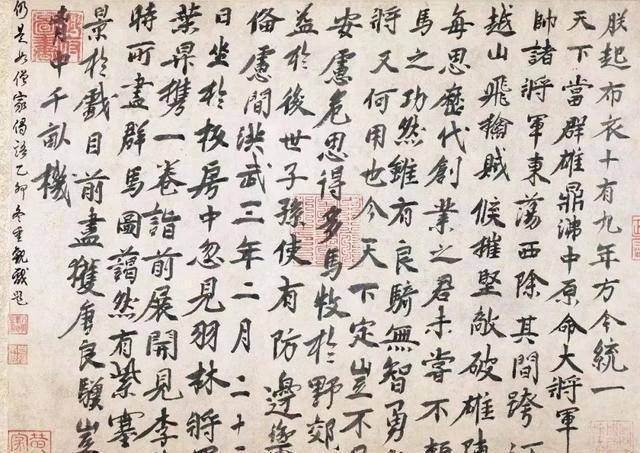 朕起布衣十有九年方今統一
天下當群雄鼎沸中原命大將軍
帥諸將軍東蕩西除其間跨
越山飛擒賊候摧堅敵破雄
每思歷代創業之君未嘗不賴
馬之功然雖有良騎無智勇
將又何用也今天下定豈不
安慮危思得多馬牧於野郊
益於後世子孫使有防邊
備慮間洪武三年二月二十
日坐於板房中忽見羽林將
葉昇攜一卷詣前展開見李
時所畫群馬圖藹然有紫塞
景於戲目前盡獲唐良驥豈
胸中千畝機
仍是如僧家偈語乙卯冬重觀戲題